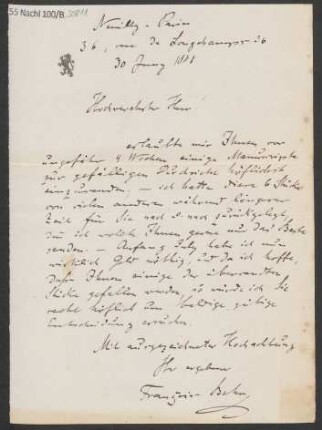 55 Nachl 100/B
Neuilly - Paris
36, rue de Longchamps 36
30 Juny 1881
Hochverehrter Herr!
erlaubte mir Ihnen vor
ungefähr 4 Wochen einige Manuscripte
zur gefälligen Durchsicht höflichst
einzusenden; — ich hatte diese 6 Stücke
von vielen anderen während längerer
Zeit für Sie nach u. nach zurückgelegt,
da ich Ihnen gerne nur das Beste
senden. — Anfang July habe ich nun
wirklich Geld nöthig, und da ich hoffe,
dass Ihnen einige der übersandten
Stücke gefallen werden, so würde ich Sie
recht höflich um baldige gütige
Entscheidung ersuchen.
Mit ausgezeichneter Hochachtung
Ihr ergebener